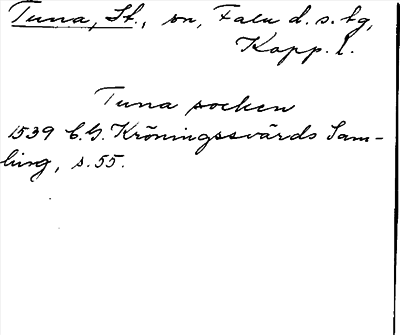 Tuna, St., sn, Falu d. s. tg,
Kopp. l.
Tuna socken
1539 C. G. Kröningssvärds Sam-
ling, s. 55.